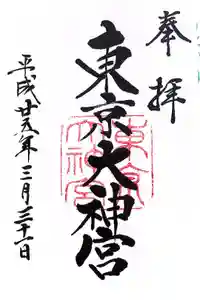 奉拝
東京大神宮
平成廿五年三月三十一日
東京大神宮